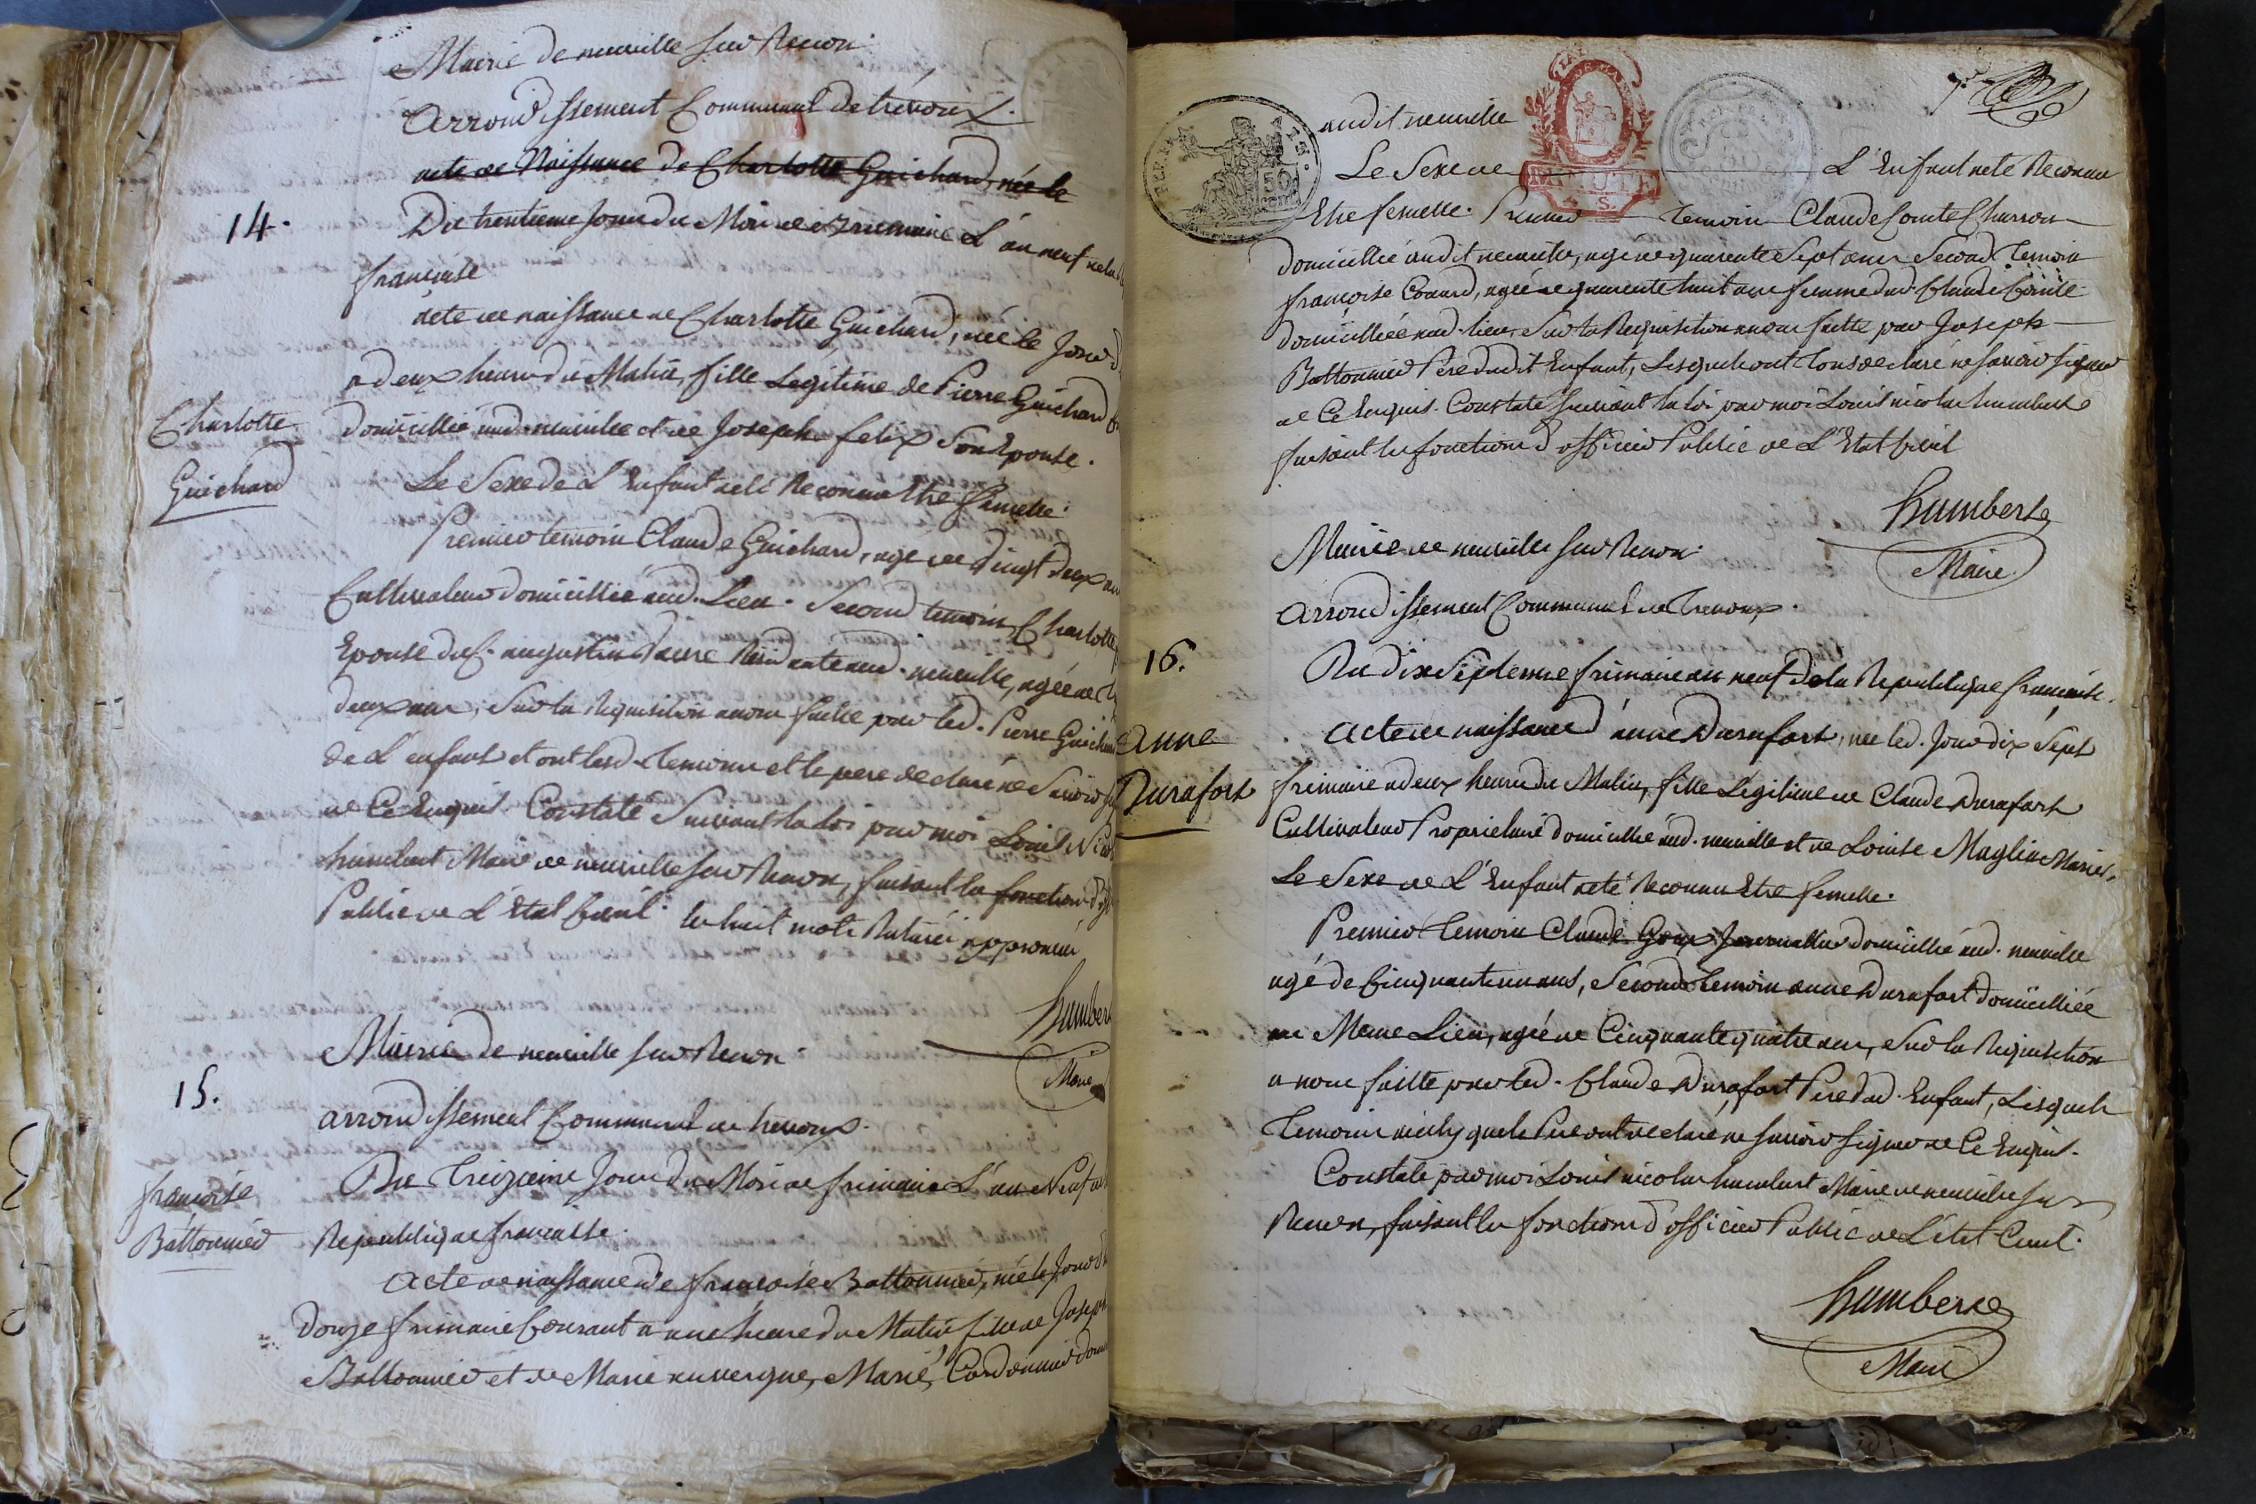 Mairie de neuville sur Renon.
Arrondissement Communal de trevoux.
acte de Naissance de Charlotte Guichard, née le
14.
Du trentieme jour du Mois de Brumaire L'an neuf de la
francaise
acte de naissance de Charlotte Guichard, née le Jour
a deux heure du Matin, fille Legitime de Pierre Guichard
Charlotte
Guichard
domicillié aud. neuville et de Joseph felix Son Epouse.
Le Sexe de L'Enfant a eté Reconnu Etre femelle.
Premier temoin Claude Guichard, agé de vingt deux ans
Cultivateur domicillié aud. Lieu. Second temoin Charlotte
Epouse du C. augustin Residante aud. neuville, agée de
deux ans, Sur la Requisition a nous faitte par led. Pierre Guichard
de L'enfant et ont lesd. temoins et le pere declaré ne Savoir
de Ce Enquis. Constaté Suivant la Loi par moi Louis Nicolas
humbert Maire de neuville sur Renon, faisant les fonctions
Public de L'Etat Civil. les huit mots Raturés approuvés
humbert
Maire
Mairie de neuville sur Renon.
15.
arrondissement Communal de trevoux.
Du Treizieme Jour du Mois de frimaire L'an Neuf
Republique francaisse.
francoise
Battonnier
Acte de naissance de francoise Battonnier, née le Jour
douze frimaire Courant a une heure du Matin fille de Joseph
Battonnier et de Marie auvergne, Marié, Cordonnier
7.e
audit neuville
Le Sexe de L'Enfant a eté Reconnu
Etre femelle. Premier Temoin Claude Comte Charron
domicillié audit neuville, agé de quarente Sept ans Second Temoin
francoise Conard, agée de quarente huit ans femme dud. Claude Comte
domicilliée aud. lieu, Sur la Requisition a nous faitte par Joseph
Battonnier Pere dudit Enfant, Lesquels ont tous declaré ne Savoir Signer
de Ce Enquis. Constaté Suivant la Loi par moi Louis nicolas humbert
faisant les fonctions d'officier Public de L'Etat Civil
humbert
Maire
Mairie de neuville sur Renon.
arrondissement Communal de Trevoux.
16.
Du dix Septieme frimaire an neuf de la Republique francaise.
anne
Durafort
Acte de naissance d'anne Durafort, née led. Jour dix Sept
frimaire a deux heure du Matin, fille Legitime de Claude Durafort
Cultivateur Proprietaire domicillié aud. neuville et de Louise Maglia Mariés,
Le Sexe de L'Enfant a eté Reconnu Etre femelle.
Premier Temoin Claude Journallier domicillié aud. neuville
agé de Cinquante un ans, Second Temoin anne Durafort domicilliée
au Meme Lieu, agée de Cinquante quatre ans, Sur la Requisition
a nous faitte par led. Claude Durafort Pere dud. Enfant, Lesquels
Temoins ainsy que le Pere ont declaré ne Savoir Signer de Ce Enquis.
Constaté par moi Louis nicolas humbert Maire de neuville sur
Renon, faisant les fonctions d'officier Public de L'état Civil.
humbert
Maire